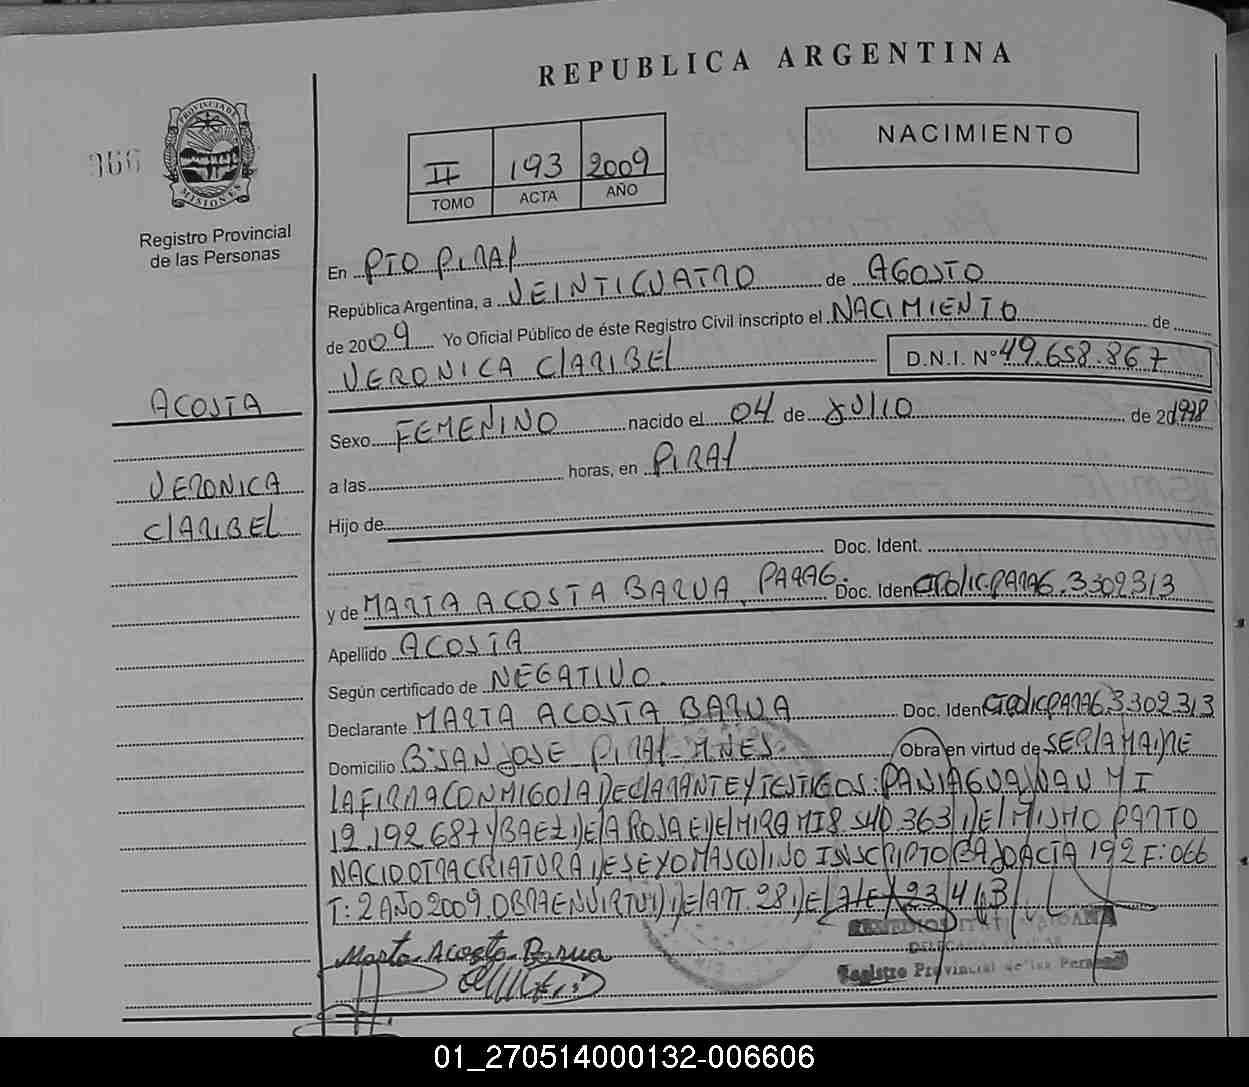 REPUBLICA ARGENTINA
PROVINCIA DE MISIONES
966
Registro Provincial
de las Personas
NACIMIENTO
II 193 2009
TOMO ACTA AÑO
En PTO PIRAY
República Argentina, a VEINTICUATRO de AGOSTO
de 2009 Yo Oficial Público de éste Registro Civil inscripto el NACIMIENTO de
VERONICA CLARIBEL D.N.I. Nº 49.658.867
ACOSTA
VERONICA
CLARIBEL
Sexo FEMENINO nacido el 04 de JULIO de 20 1998
a las horas, en PIRAY
Hijo de
Doc. Ident.
y de MARTA ACOSTA BARUA, PARAG. Doc. Iden PARAG. 3309313
Apellido ACOSTA
Según certificado de NEGATIVO.
Declarante MARTA ACOSTA BARUA Doc. Iden PARAG 3309313
Domicilio Bº SAN JOSE PIRAY - MNES. Obra en virtud de SER LA MADRE
LA FIRMA CONMIGO LA DECLARANTE Y TESTIGOS: PANIAGUA JUAN M I
12.192.687 Y BAEZ DE LA ROSA ELMIRA MI 8.540.363 DEL MISMO PARTO
NACIO OTRA CRIATURA DE SEXO MASCULINO INSCRIPTO BAJO ACTA 192 F: 066
T: 2 AÑO 2009. OBRA EN VIRTUD DEL ART. 28 DE LA LEY
Marta Acosta Barua
Registro Provincial de las Personas
01_270514000132-006606